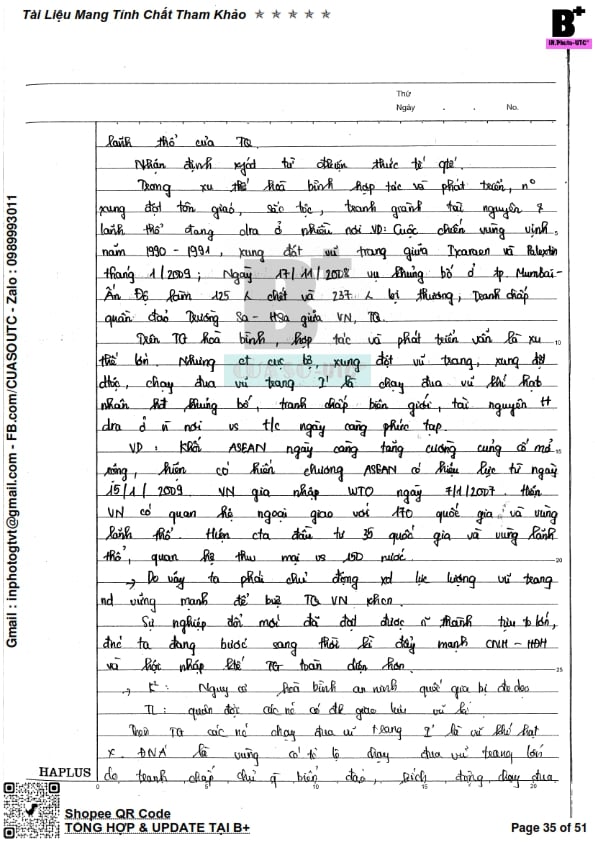 Tài Liệu Mang Tính Chất Tham Khảo ★ ★ ★ ★ ★
B+
IN.Photo-UTC
Thứ
Ngày . . No.
lãnh thổ của TQ.
Nhận định xphát từ thực tế qtế.
Trong xu thế hoà bình hợp tác và phát triển, n°
xung đột tôn giáo, sắc tộc, tranh giành tài nguyên &
lãnh thổ đang dra ở nhiều nơi VD: Cuộc chiến vùng vịnh
năm 1990 - 1991, xung đột vũ trang giữa Ixaraen và Palextin
tháng 1/2009; Ngày 17/11/2008 vụ khủng bố ở tp. Mumbai-
Ấn Độ làm 125 chết và 237 bị thương, Tranh chấp
quần đảo Trường Sa - HSa giữa VN, TQ.
Trên TG hoà bình, hợp tác và phát triển vẫn là xu
thế lớn. Nhưng ct cục bộ, xung đột vũ trang, xung đột
dtộc, chạy đua vũ trang I' là chạy đua vũ khí hạt
nhân hđ khủng bố, tranh chấp biên giới, tài nguyên
dra ở ñ nơi vs t/c ngày càng phức tạp.
VD: Khối ASEAN ngày càng tăng cường củng cố mở
rộng, hiến có hiến chương ASEAN có hiệu lực từ ngày
15/1/2009. VN gia nhập WTO ngày 7/1/2007. Hiện
VN có quan hệ ngoại giao với 170 quốc gia và vùng
lãnh thổ. Hiện cta đầu tư 35 quốc gia và vùng lãnh
thổ, quan hệ thư mại vs 150 nước.
→ Do vậy ta phải chủ động xd lực lượng vũ trang
nd vững mạnh để bvệ TQ VN
Sự nghiệp đổi mới đã đạt được ñ thành tựu to lớn,
đnc ta đang bước sang thời kì đẩy mạnh CNH - HĐH
và hội nhập ktế TG toàn diện hơn.
→ : Nguy cơ hoà bình an ninh quốc gia bị đe dọa
TL: quân đội các nc có đk giao lưu vũ kí
Trên TG các nc chạy đua vũ trang I' là vũ khí hạt
x. ĐNÁ là vùng có tỉ lệ chạy đua vũ trang lớn
do tranh chấp chủ q biển đảo, kích động chạy đua
5
10
15
20
25
0 5 10 15 20
HAPLUS
B+
CUASO-UTC
Gmail : inphotogtvt@gmail.com - FB.com/CUASOUTC - Zalo : 0989993011
Shopee QR Code
TỔNG HỢP & UPDATE TẠI B+
Page 35 of 51